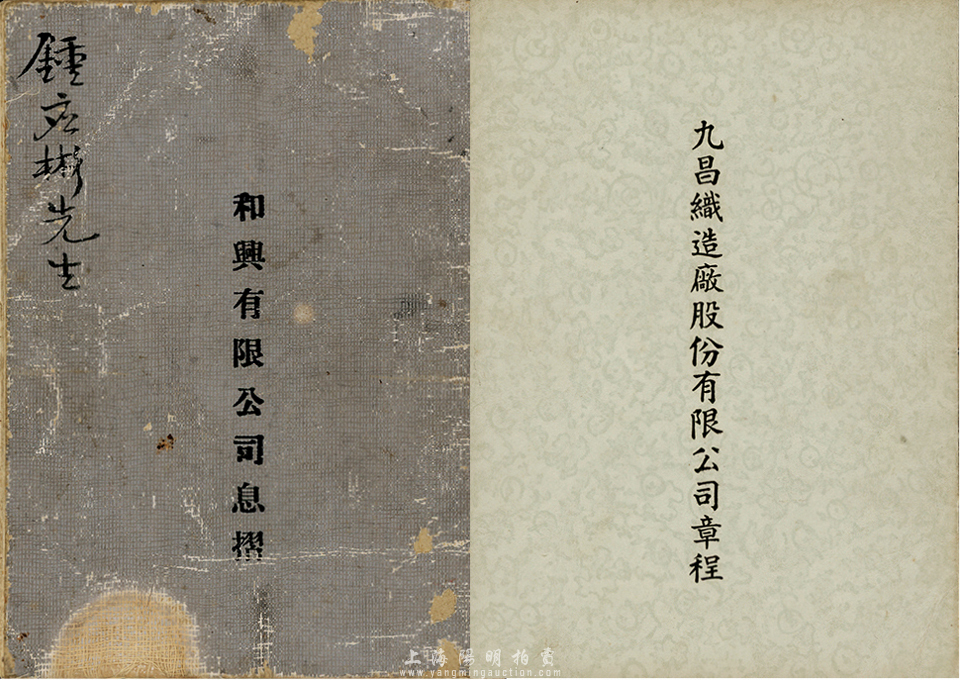 鍾应彬先生
和興有限公司息摺
九昌織造廠股份有限公司章程
上海陽明拍賣
www.yangmingauction.com